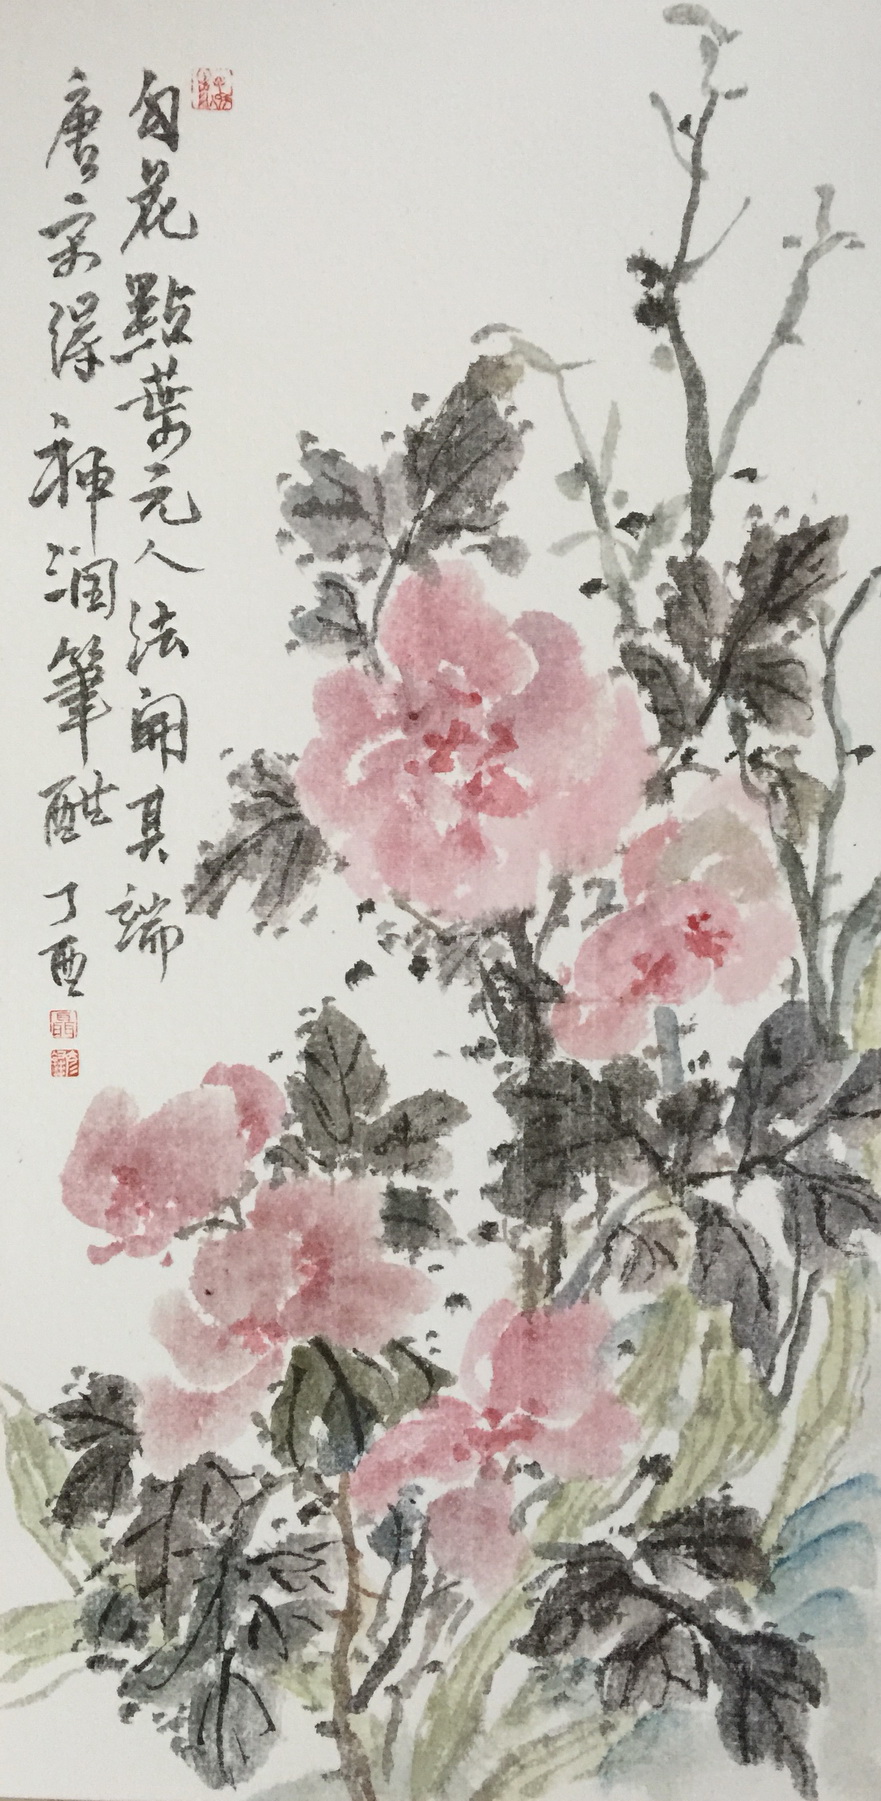 勾花點葉元人法開其端
唐宋得神潤筆酣 丁酉